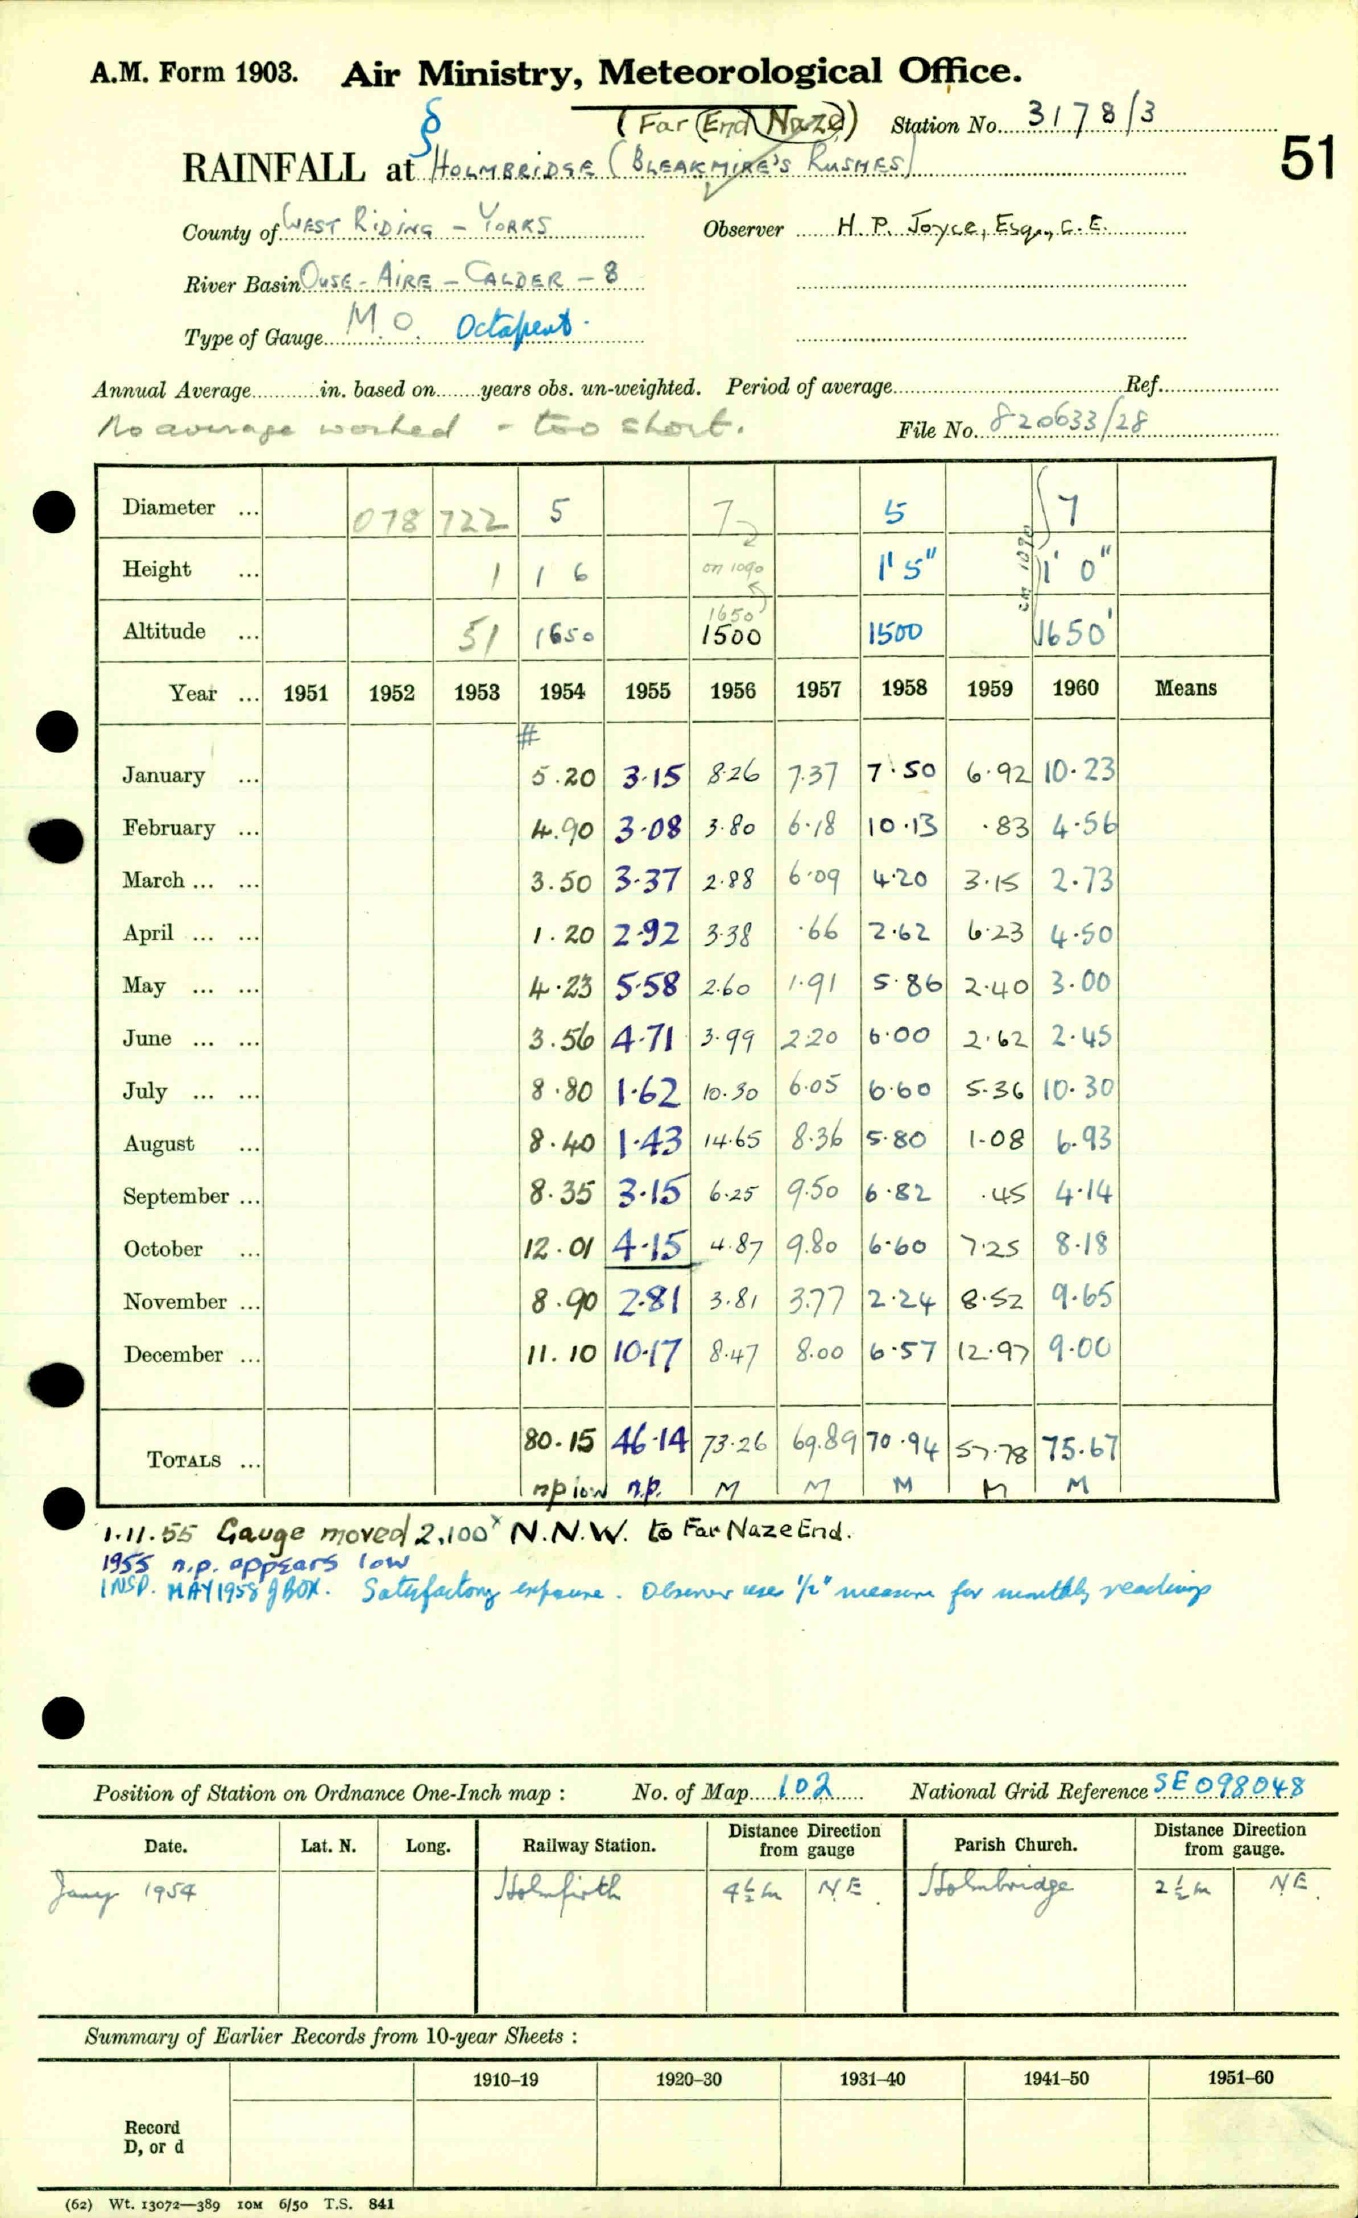 A.M. Form 1903. Air Ministry, Meteorological Office.
(Far End Naze) Station No. 3178/3
51
§
RAINFALL at HOLMBRIDGE (BLEAKMIRE'S RUSHES)
County of WEST RIDING - YORKS Observer H. P. Joyce, Esq., C.E.
River Basin OUSE - AIRE - CALDER - 8
Type of Gauge M.O. Octapent.
Annual Average in. based on years obs. un-weighted. Period of average Ref.
No average worked - too short. File No. 820633/28
Diameter ... 078 722 5 7 5 7
Height ... 1 1 6 on 1090 1' 5" 1' 0"
1650
Altitude ... 51 1650 1500 1500 1650'
Year ... 1951 1952 1953 1954 1955 1956 1957 1958 1959 1960 Means
#
January ... 5.20 3.15 8.26 7.37 7.50 6.92 10.23
February ... 4.90 3.08 3.80 6.18 10.13 .83 4.56
March ... ... 3.50 3.37 2.88 6.09 4.20 3.15 2.73
April ... ... 1.20 2.92 3.38 .66 2.62 6.23 4.50
May ... ... 4.23 5.58 2.60 1.91 5.86 2.40 3.00
June ... ... 3.56 4.71 3.99 2.20 6.00 2.62 2.45
July ... ... 8.80 1.62 10.30 6.05 6.60 5.36 10.30
August ... 8.40 1.43 14.65 8.36 5.80 1.08 6.93
September ... 8.35 3.15 6.25 9.50 6.82 .45 4.14
October ... 12.01 4.15 4.87 9.80 6.60 7.25 8.18
November ... 8.90 2.81 3.81 3.77 2.24 8.52 9.65
December ... 11.10 10.17 8.47 8.00 6.57 12.97 9.00
TOTALS ... 80.15 46.14 73.26 69.89 70.94 57.78 75.67
np low n.p. M M M M M
1.11.55 Gauge moved 2,100ˣ N.N.W. to Far Naze End.
1955 n.p. appears low
INSP. MAY 1958 BOX. Satisfactory exposure. Observer uses 1/2" measure for monthly readings
Position of Station on Ordnance One-Inch map : No. of Map 102 National Grid Reference SE 098048
Date. Lat. N. Long. Railway Station. Distance Direction from gauge Parish Church. Distance Direction from gauge.
Jany 1954 Holmfirth 4½m NE. Holmbridge 2½m NE.
Summary of Earlier Records from 10-year Sheets :
1910–19 1920–30 1931–40 1941–50 1951–60
Record
D, or d
(62) Wt. 13072—389 10M 6/50 T.S. 841